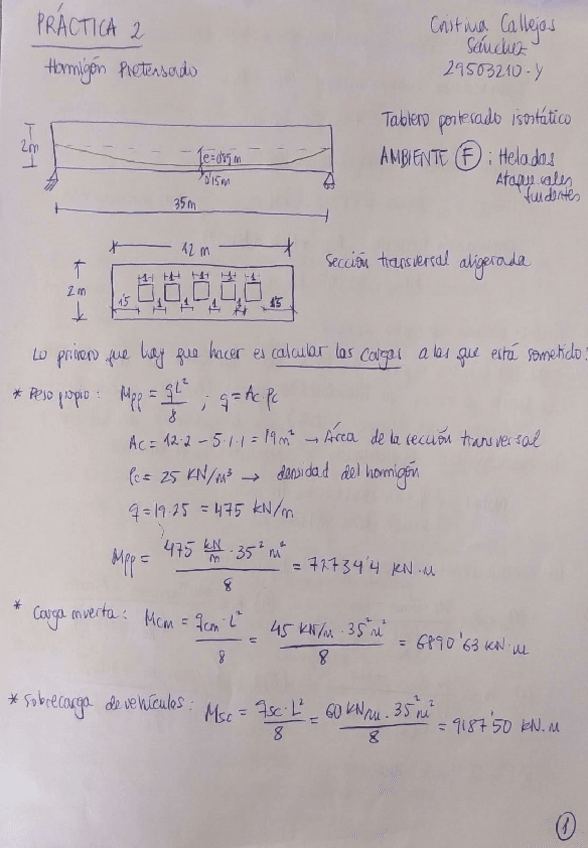 PRÁCTICA 2
Cristina Callejas
Sánchez
29503210-Y
Hormigón Pretensado
Tablero postesado isostático
AMBIENTE F: Heladas
Ataque sales
fundentes
2m
e=0'85m
0'15m
35m
12 m
Sección transversal aligerada
2m
1 1 1 1 1
1'5 1 1 1 1 1'5
Lo primero que hay que hacer es calcular las cargas a las que está sometido:
* Peso propio: Mpp = qL²/8 ; q = Ac·ρc
Ac = 12·2 - 5·1·1 = 19m² → Área de la sección transversal
ρc = 25 KN/m³ → densidad del hormigón
q = 19·25 = 475 KN/m
Mpp = 475 KN/m · 35² m²/8 = 72734'4 KN·m
* Carga muerta: Mcm = qcm·L²/8 = 45 KN/m · 35² m²/8 = 6890'63 KN·m
* Sobrecarga de vehículos: Msc = qsc·L²/8 = 60 KN/m · 35² m²/8 = 9187'50 KN·m
1